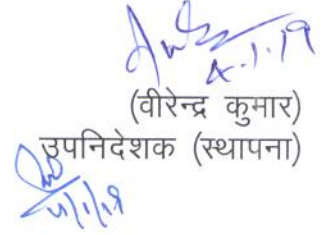 4.1.19
(वीरेन्द्र कुमार)
उपनिदेशक (स्थापना)
4/1/19